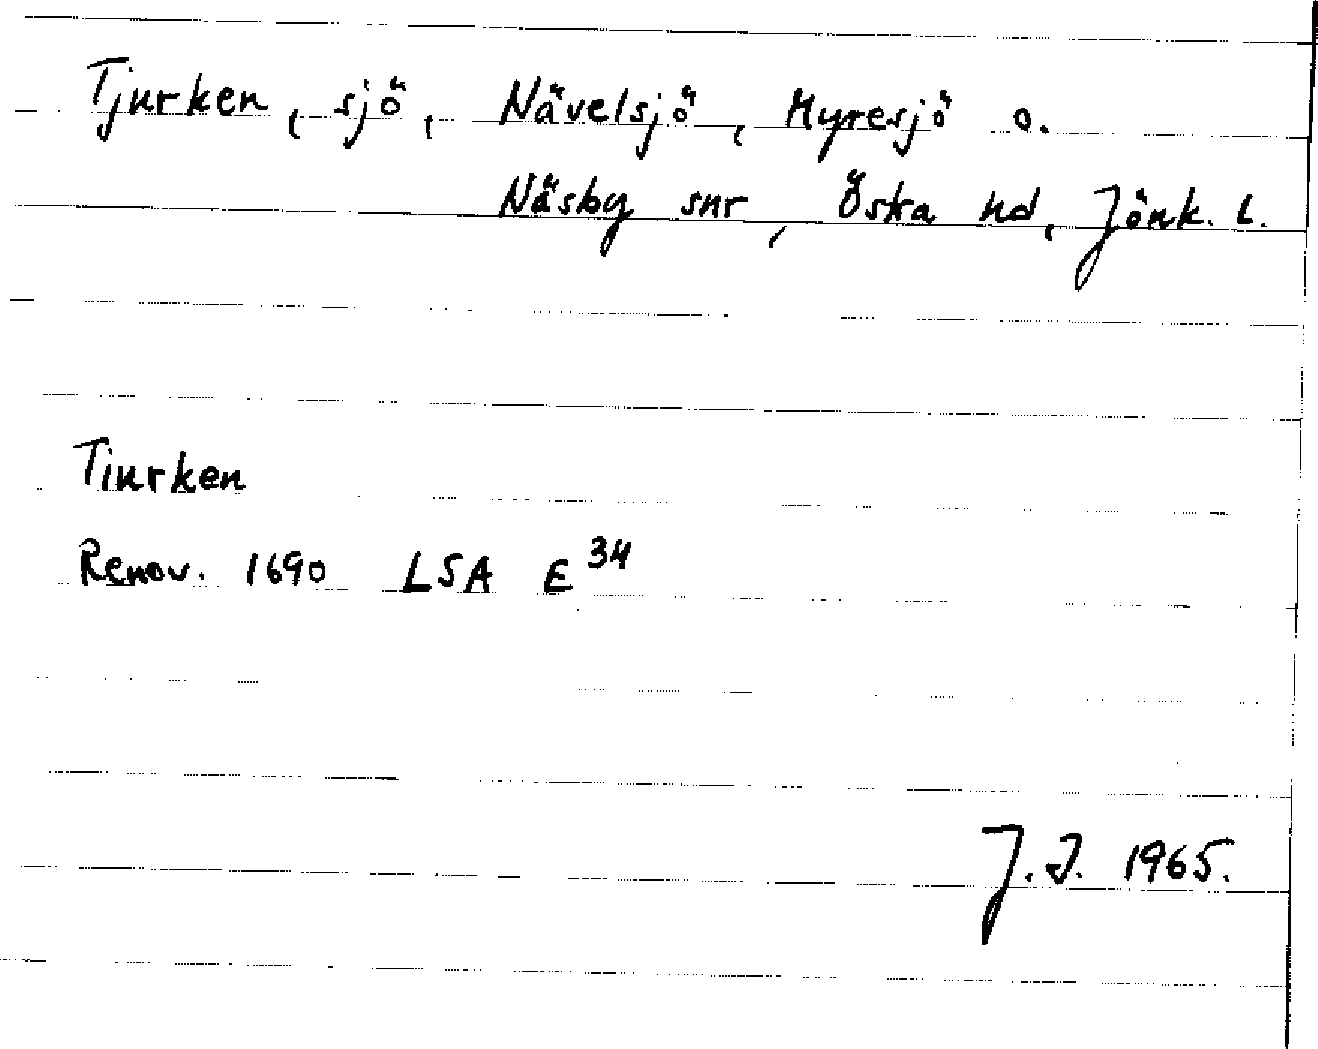 Tjurken, sjö, Nävelsjö, Myresjö o.
Näsby snr, Östra hd, Jönk. L.
Tiurken
Renov. 1690 LSA E 34
J.I. 1965.